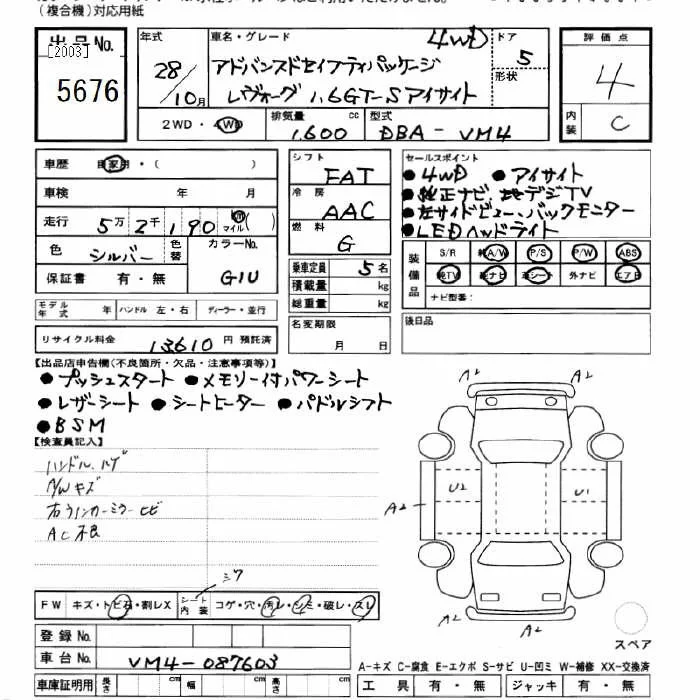 (複合機)対応用紙
出品No.
[2003]
5676
年式 車名・グレード 4WD ドア 5
28/10月 アドバンスドセイフティパッケージ 形状
レヴォーグ 1.6GT-Sアイサイト
2WD・4WD 排気量 1,600 cc 型式 DBA-VM4
評価点
4
内装 C
車歴 自家用・( )
車検 年 月
走行 5万2千190 マイル( )
色 シルバー 色替 カラーNo. G1U
保証書 有・無
モデル年式 年 ハンドル 左・右 ディーラー・並行
リサイクル料金 13610円 預託済
シフト FAT
冷房 AAC
燃料 G
乗車定員 5名
積載量 kg
総重量 kg
名変期限 月 日
セールスポイント
●4WD ●アイサイト
●純正ナビ、地デジTV
●左サイドビュー、バックモニター
●LEDヘッドライト
装備品 S/R 純A/W P/S P/W ABS
純TV 純ナビ 革シート 外ナビ エアB
ナビ型番:
後日品
【出品店申告欄(不良箇所・欠品・注意事項等)】
●プッシュスタート ●メモリー付パワーシート
●レザーシート ●シートヒーター ●パドルシフト
●BSM
【検査員記入】
ハンドル、ハゲ
A/Wキズ
右ウィンカーミラーヒビ
AC不良
シワ
FW キズ・トビ石・割レX シート内装 コゲ・穴・汚レ・シミ・破レ・スレ
登録No.
車台No. VM4-087603
車庫証明用 長さ cm 幅 cm 高さ cm
A2 A2
U2 U1
A2
A2 A2
スペア
A-キズ C-腐食 E-エクボ S-サビ U-凹ミ W-補修 XX-交換済
工具 有・無 ジャッキ 有・無